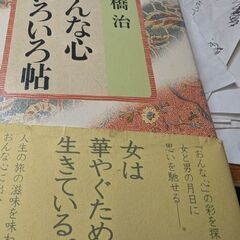 橋治
んな心
ろいろ帖
女は
華やぐため
生きている。
「おんな心」の彩を探
女と男の月日に
思いを馳せる――。
人生の旅の滋味を味わ
おんな心に出